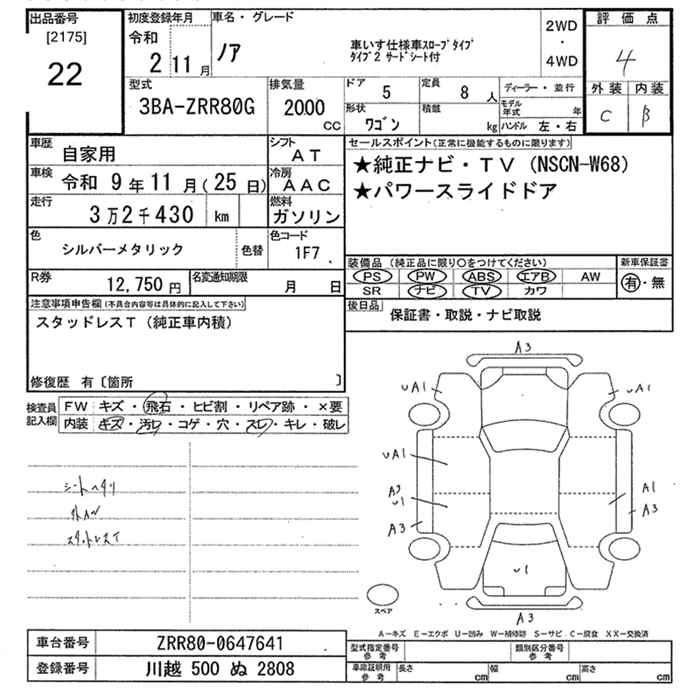 出品番号
[2175]
22
初度登録年月
令和
2 11月
車名・グレード
ノア
車いす仕様車スロープタイプ
タイプ2 サードシート付
2WD
・
4WD
評価点
4
外装 内装
C B
型式
3BA-ZRR80G
排気量
2000
CC
ドア
5
定員
8 人
ディーラー・並行
形状
ワゴン
積載
kg
モデル年式 年
ハンドル 左・右
車歴
自家用
シフト
AT
車検
令和 9年11月(25日)
冷房
AAC
走行
3万2千430 km
燃料
ガソリン
色
シルバーメタリック
色替
色コード
1F7
R券
12,750円
名変通知期限
月 日
セールスポイント(正常に機能するものに限ります)
★純正ナビ・TV (NSCN-W68)
★パワースライドドア
装備品 (純正品に限り○をつけてください)
PS PW ABS エアB AW
SR ナビ TV カワ
新車保証書
有・無
後日品
保証書・取説・ナビ取説
注意事項申告欄(不具合内容等は具体的に記入して下さい)
スタッドレスT (純正車内積)
修復歴 有〔箇所 〕
検査員
記入欄
FW キズ・飛石・ヒビ割・リペア跡・×要
内装 キズ・汚レ・コゲ・穴・スレ・キレ・破レ
シートヘタリ
外AW
スタットレスT
A3
UA1
UA1
UA1
A3
U1
A3
A1
A3
U1
A3
スペア
A-キズ E-エクボ U-凹み W-補修跡 S-サビ C-腐食 XX-交換済
車台番号
ZRR80-0647641
登録番号
川越 500 ぬ 2808
型式指定番号
参考
類別区分番号
参考
車庫証明用
参考
長さ cm
幅 cm
高さ cm